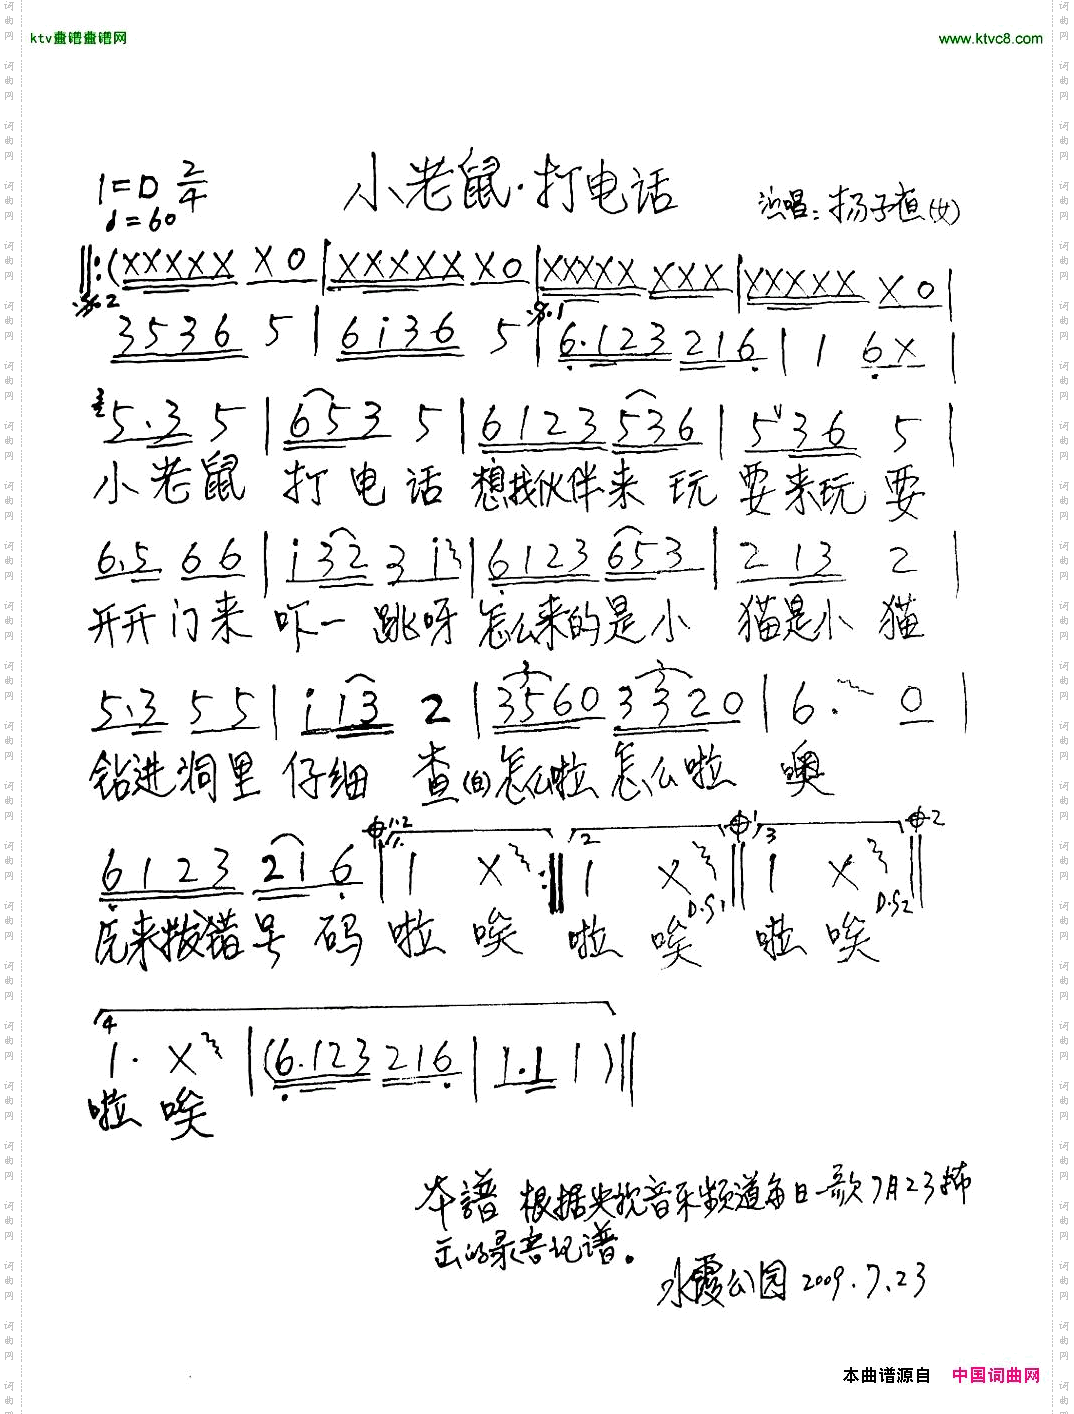 ktv盘谱盘谱网 www.ktvc8.com
小老鼠·打电话
1=D 2/4
♩=60
演唱：杨子直(女)
‖:(XXXXX X0|XXXXX X0|XXXXX XXX|XXXXX X0|
3536 5|6i36 5|6.123 216|1 6X|
5.3 5|653 5|6123 536|5 36 5|
小老鼠 打电话 想找伙伴来玩耍来玩耍
6.5 66|i32 3i3|6123 653|2 13 2|
开开门来吓一跳呀怎么来的是小猫是小猫
5.3 55|i i3 2|3560 3320|6. 0|
钻进洞里仔细查(自)怎么啦怎么啦 噢
6123 216|1 X:‖1 X‖1 X‖
1.2 2 3 D.S1 D.S2
原来拨错号码啦唉 啦唉 啦唉
4
1. X|(6.123 216|1.1 1)‖
啦唉
本谱根据央视音乐频道每日一歌7月23播
出的录音记谱。
水霞公园 2009.7.23
本曲谱源自 中国词曲网